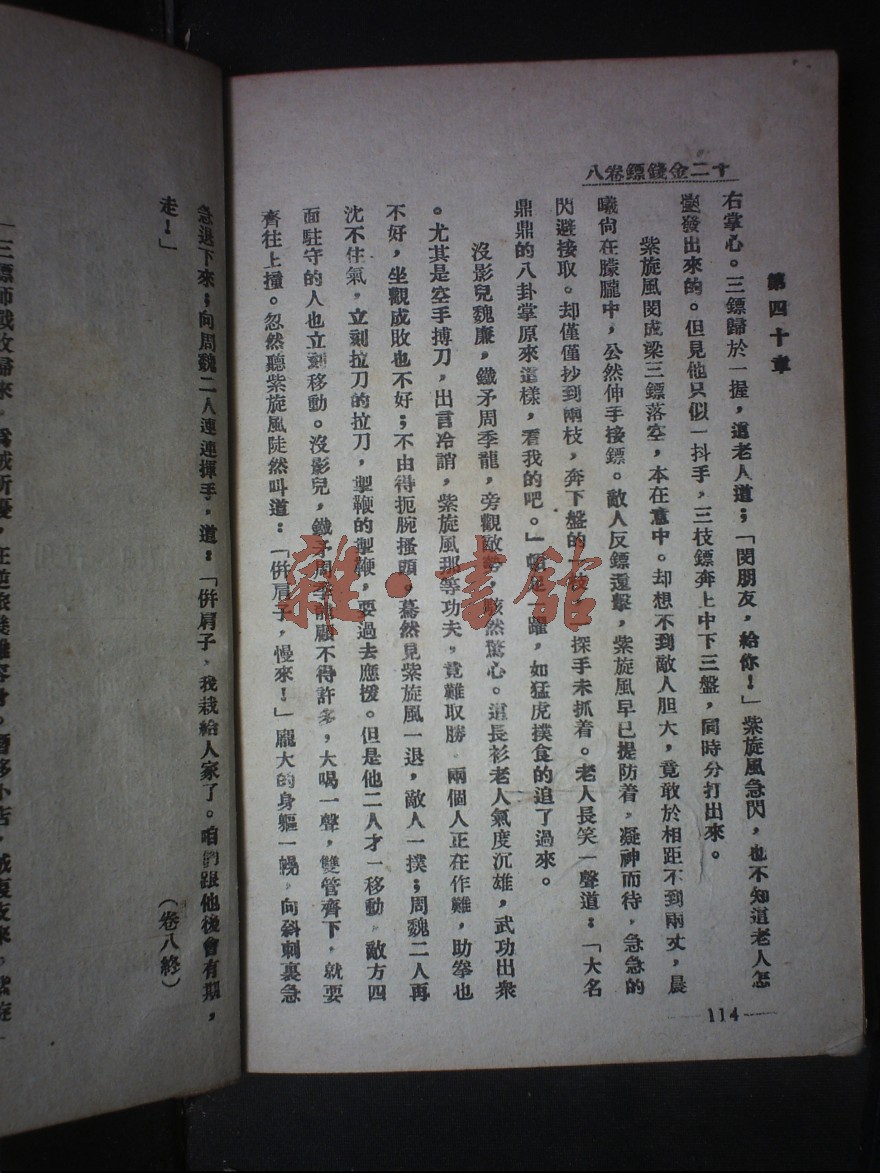 十二金錢鏢卷八
第四十章
右掌心。三鏢歸於一握,這老人道;「閔朋友,給你!」紫旋風急閃,也不知這老人怎
麽發出來的。但見他只似一抖手,三枝鏢奔上中下三盤,同時分打出來。
紫旋風閔成梁三鏢落空,本在意中。却想不到敵人胆大,竟敢於相距不到兩丈,晨
曦尙在朦朧中,公然伸手接鏢。敵人反鏢還擊,紫旋風早已提防着,凝神而待,急急的
閃避接取。却僅僅抄到兩枝,奔下盤的一枝,探手未抓着。老人長笑一聲道:「大名
鼎鼎的八卦掌原來這樣,看我的吧。」頓足一躍,如猛虎撲食的追了過來。
沒影兒魏廉,鐵矛周季龍,旁觀敵勢,駭然驚心。這長衫老人氣度沉雄,武功出衆
。尤其是空手搏刀,出言冷誚,紫旋風那等功夫,竟難取勝。兩個人正在作難,助拳也
不好,坐觀成敗也不好;不由得扼腕搔頭。驀然見紫旋風一退,敵人一撲;周魏二人再
沈不住氣,立刻拉刀的拉刀,掣鞭的掣鞭,要過去應援。但是他二人才一移動,敵方四
面駐守的人也立刻移動。沒影兒,鐵矛周季龍顧不得許多,大喝一聲,雙管齊下,就要
齊往上撞。忽然聽紫旋風陡然叫道:「併肩子,慢來!」龐大的身軀一幌,向斜刺裏急
114
急退下來;向周魏二人連連揮手,道:「併肩子,我栽給人家了。咱們跟他後會有期,
走!」
(卷八終)
雜·書館